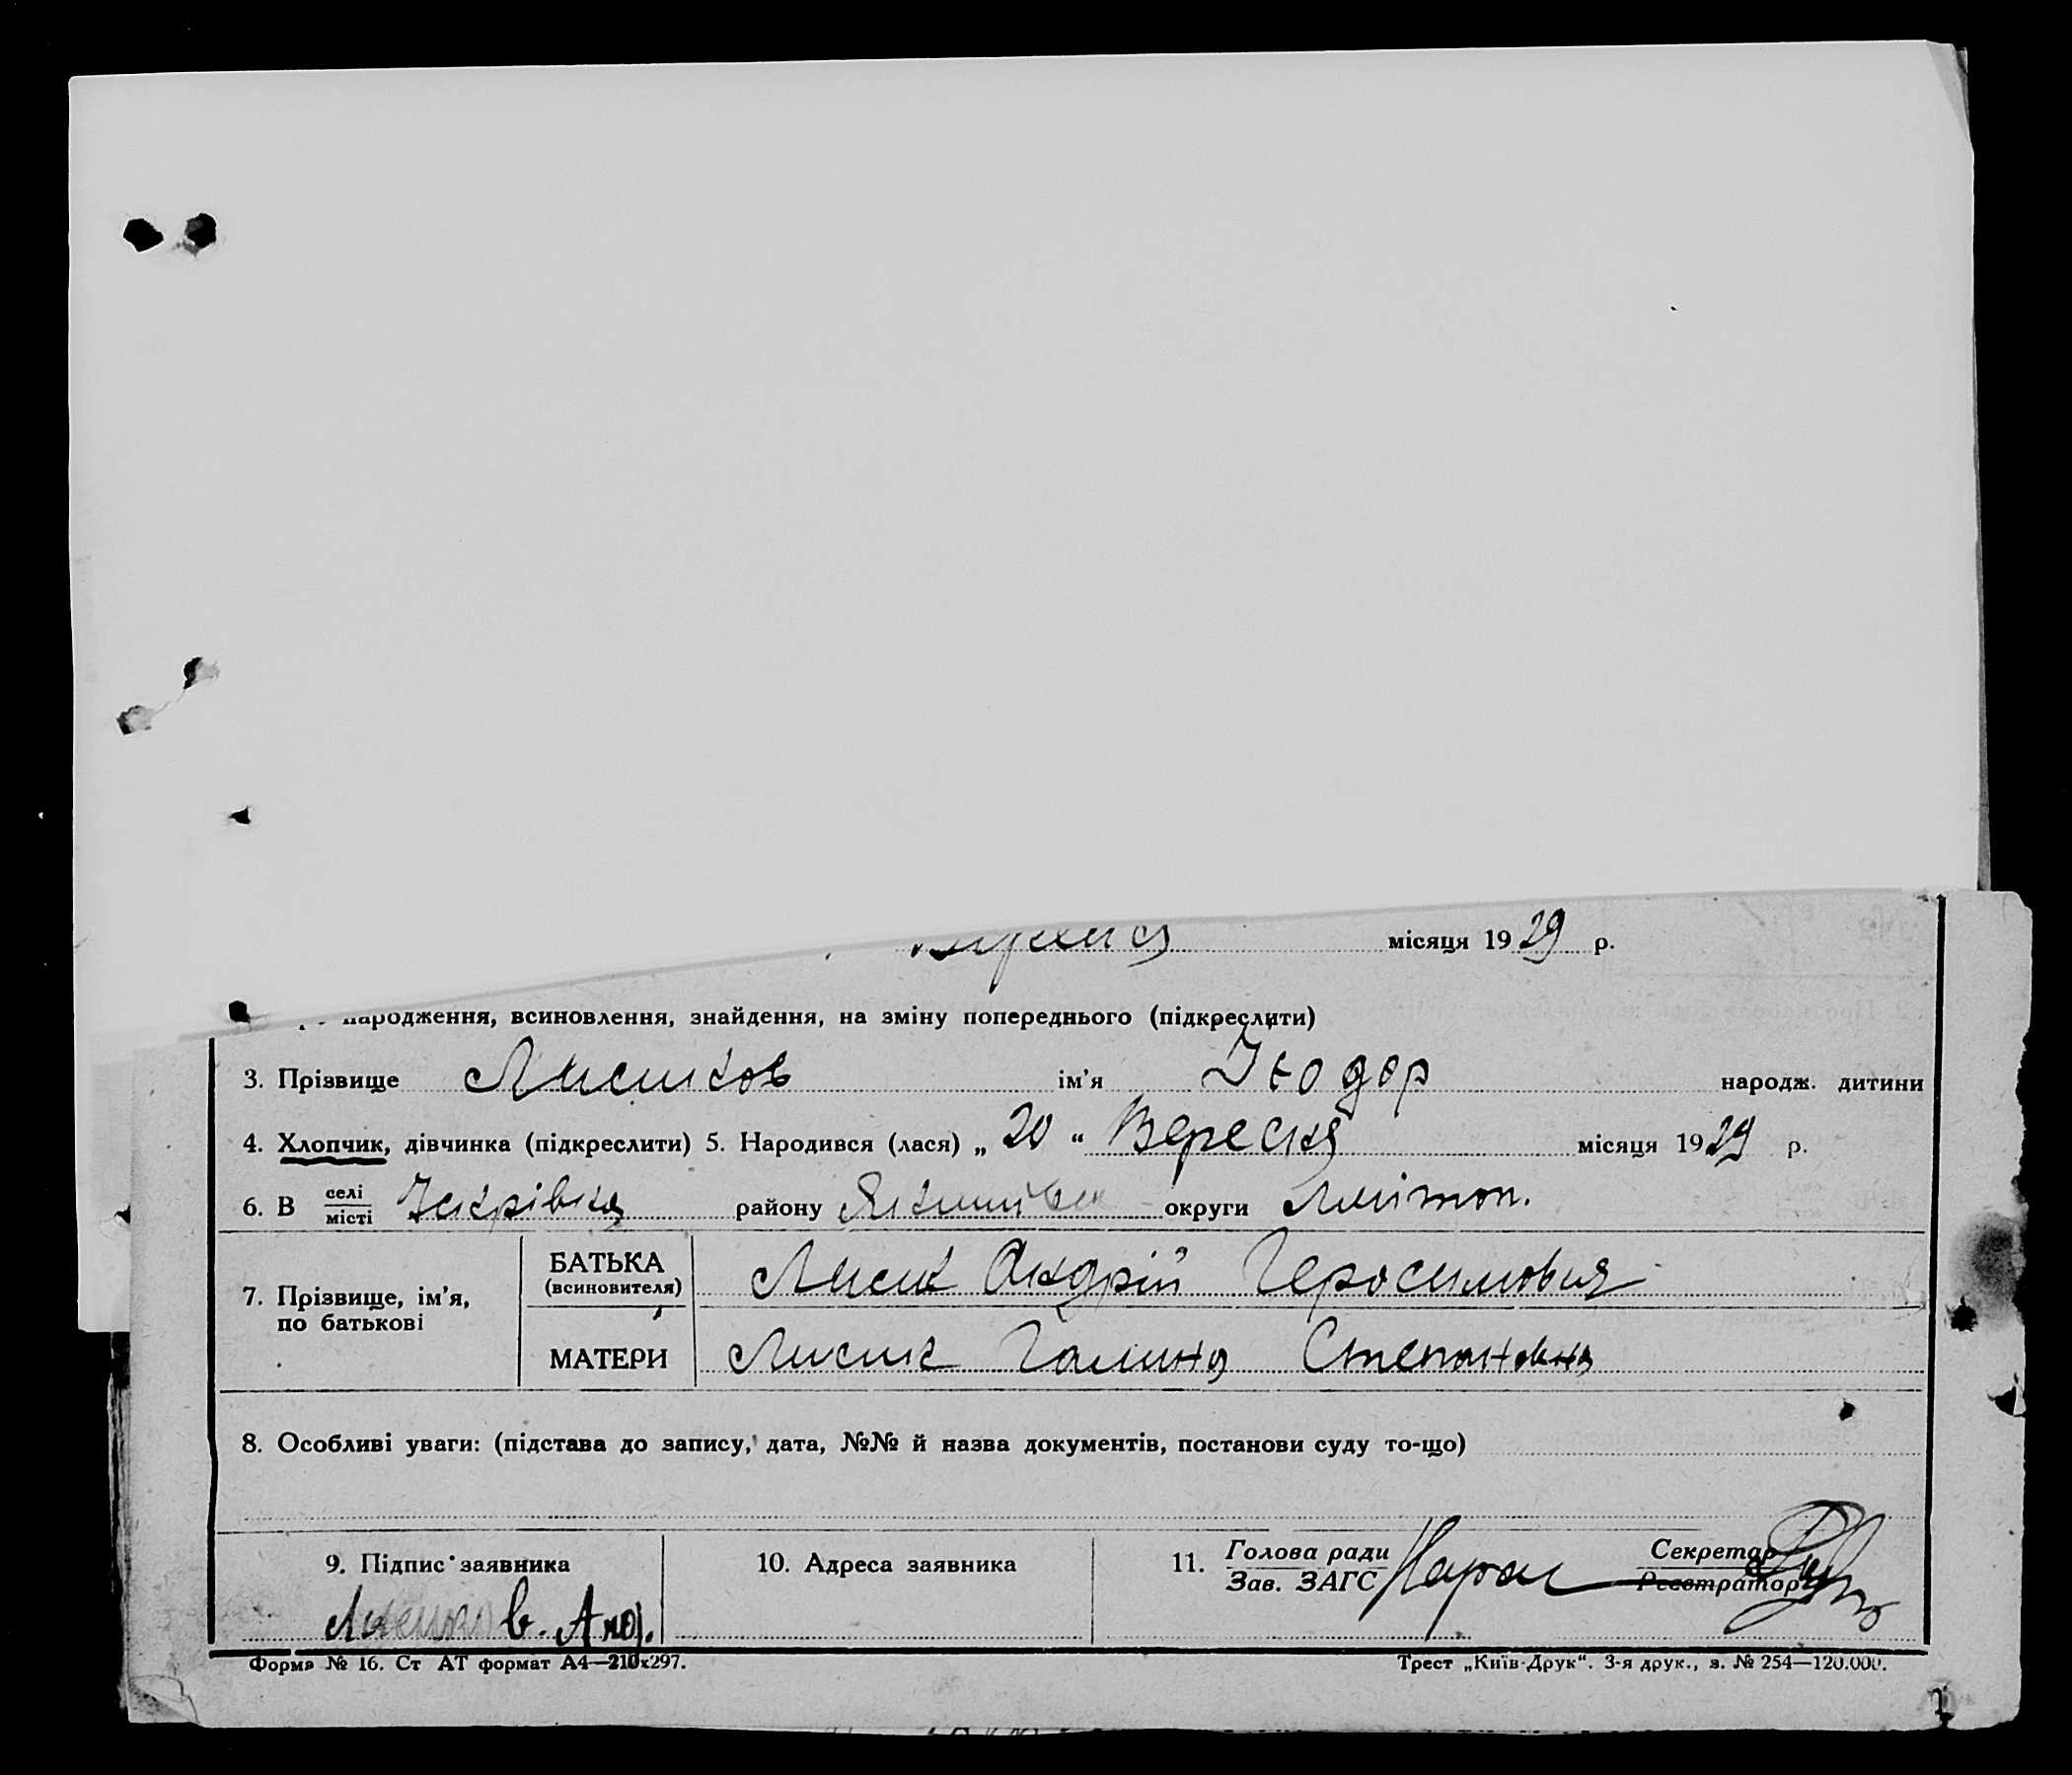 місяця 1929 р.
народження, всиновлення, знайдення, на зміну попереднього (підкреслити)
3. Прізвище Лисиков ім'я Теодор народж. дитини
4. Хлопчик, дівчинка (підкреслити) 5. Народився (лася) „ 20 “ Вересня місяця 1929 р.
6. В селі/місті району округи Мелітоп.
7. Прізвище, ім'я, по батькові
БАТЬКА (всиновителя) Лисик Андрій Геросимович
МАТЕРИ Лисик Галина Степановна
8. Особливі уваги: (підстава до запису, дата, №№ й назва документів, постанови суду то-що)
9. Підпис заявника
10. Адреса заявника
11. Голова ради Секретар
Зав. ЗАГС Реєстратор
Форма № 16. Ст АТ формат А4—210х297. Трест „Київ-Друк“. 3-я друк., з. № 254—120.000.